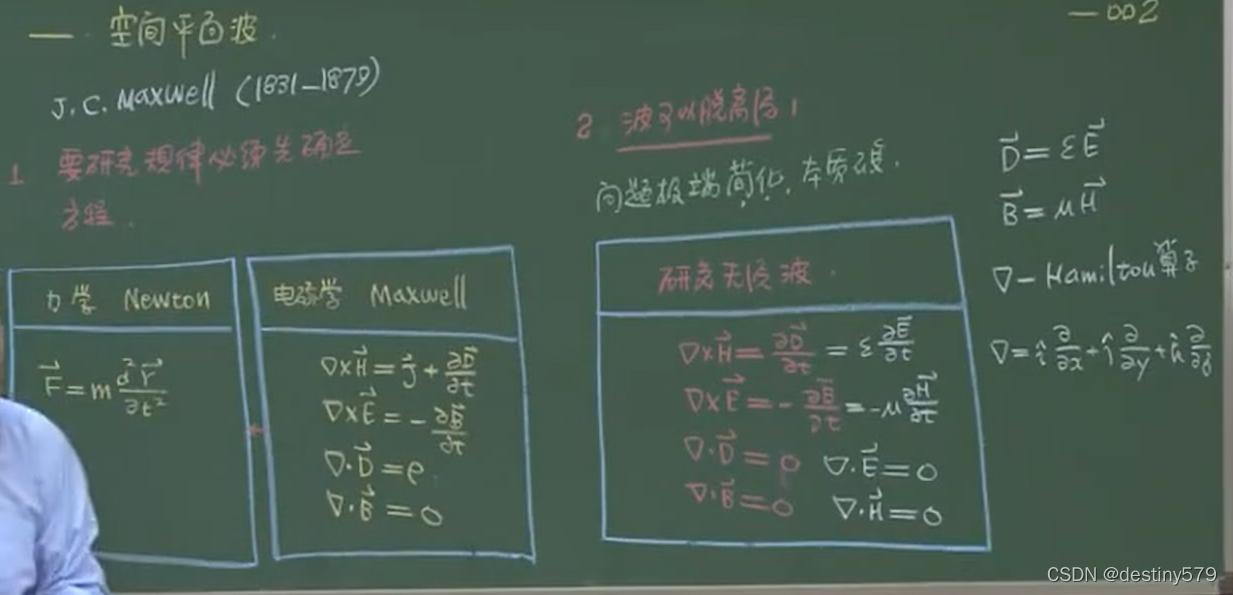 一. 空间平面波.
—002
J.C. Maxwell (1831—1879)
1 要研究规律必须先确定
方程.
力学 Newton
F⃗ = m d²r⃗/∂t²
电磁学 Maxwell
∇×H⃗ = J⃗ + ∂D⃗/∂t
∇×E⃗ = -∂B⃗/∂t
∇·D⃗ = ρ
∇·B⃗ = 0
2 波可以脱离源,
问题极端简化,本质
研究无源波.
∇×H⃗ = ∂D⃗/∂t = ε ∂E⃗/∂t
∇×E⃗ = -∂B⃗/∂t = -μ ∂H⃗/∂t
∇·D⃗ = 0 ∇·E⃗ = 0
∇·B⃗ = 0 ∇·H⃗ = 0
D⃗ = εE⃗
B⃗ = μH⃗
∇ — Hamilton算子
∇ = î ∂/∂x + ĵ ∂/∂y + k̂ ∂/∂z
CSDN @destiny579